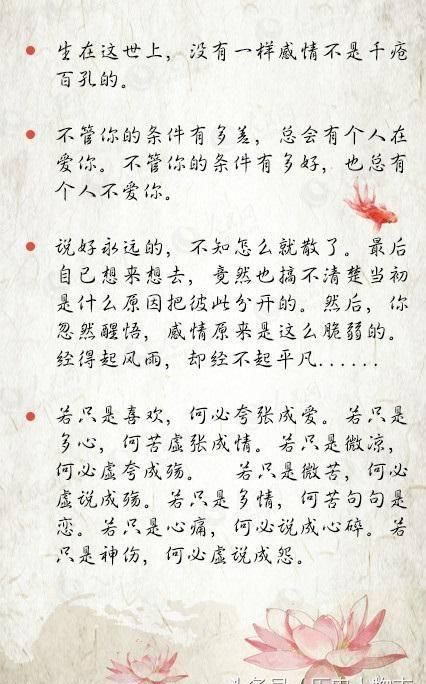 生在这世上，没有一样感情不是千疮
百孔的。
不管你的条件有多差，总会有个人在
爱你。不管你的条件有多好，也总有
个人不爱你。
说好永远的，不知怎么就散了。最后
自己想来想去，竟然也搞不清楚当初
是什么原因把彼此分开的。然后，你
忽然醒悟，感情原来是这么脆弱的。
经得起风雨，却经不起平凡......
若只是喜欢，何必夸张成爱。若只是
多心，何苦虚张成情。若只是微凉，
何必虚夸成殇。 若只是微苦，何必
虚说成殇。若只是多情，何苦句句是
恋。若只是心痛，何必说成心碎。若
只是神伤，何必虚说成怨。